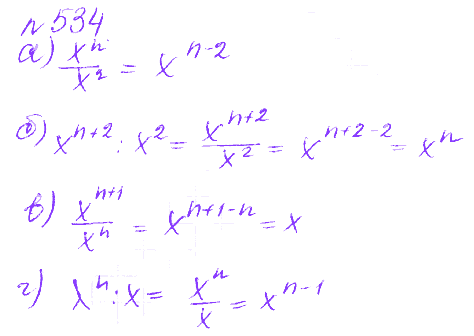 №534
а) xⁿ/x² = xⁿ⁻²
б) xⁿ⁺² : x² = xⁿ⁺²/x² = xⁿ⁺²⁻² = xⁿ
в) xⁿ⁺¹/xⁿ = xⁿ⁺¹⁻ⁿ = x
г) xⁿ : x = xⁿ/x = xⁿ⁻¹